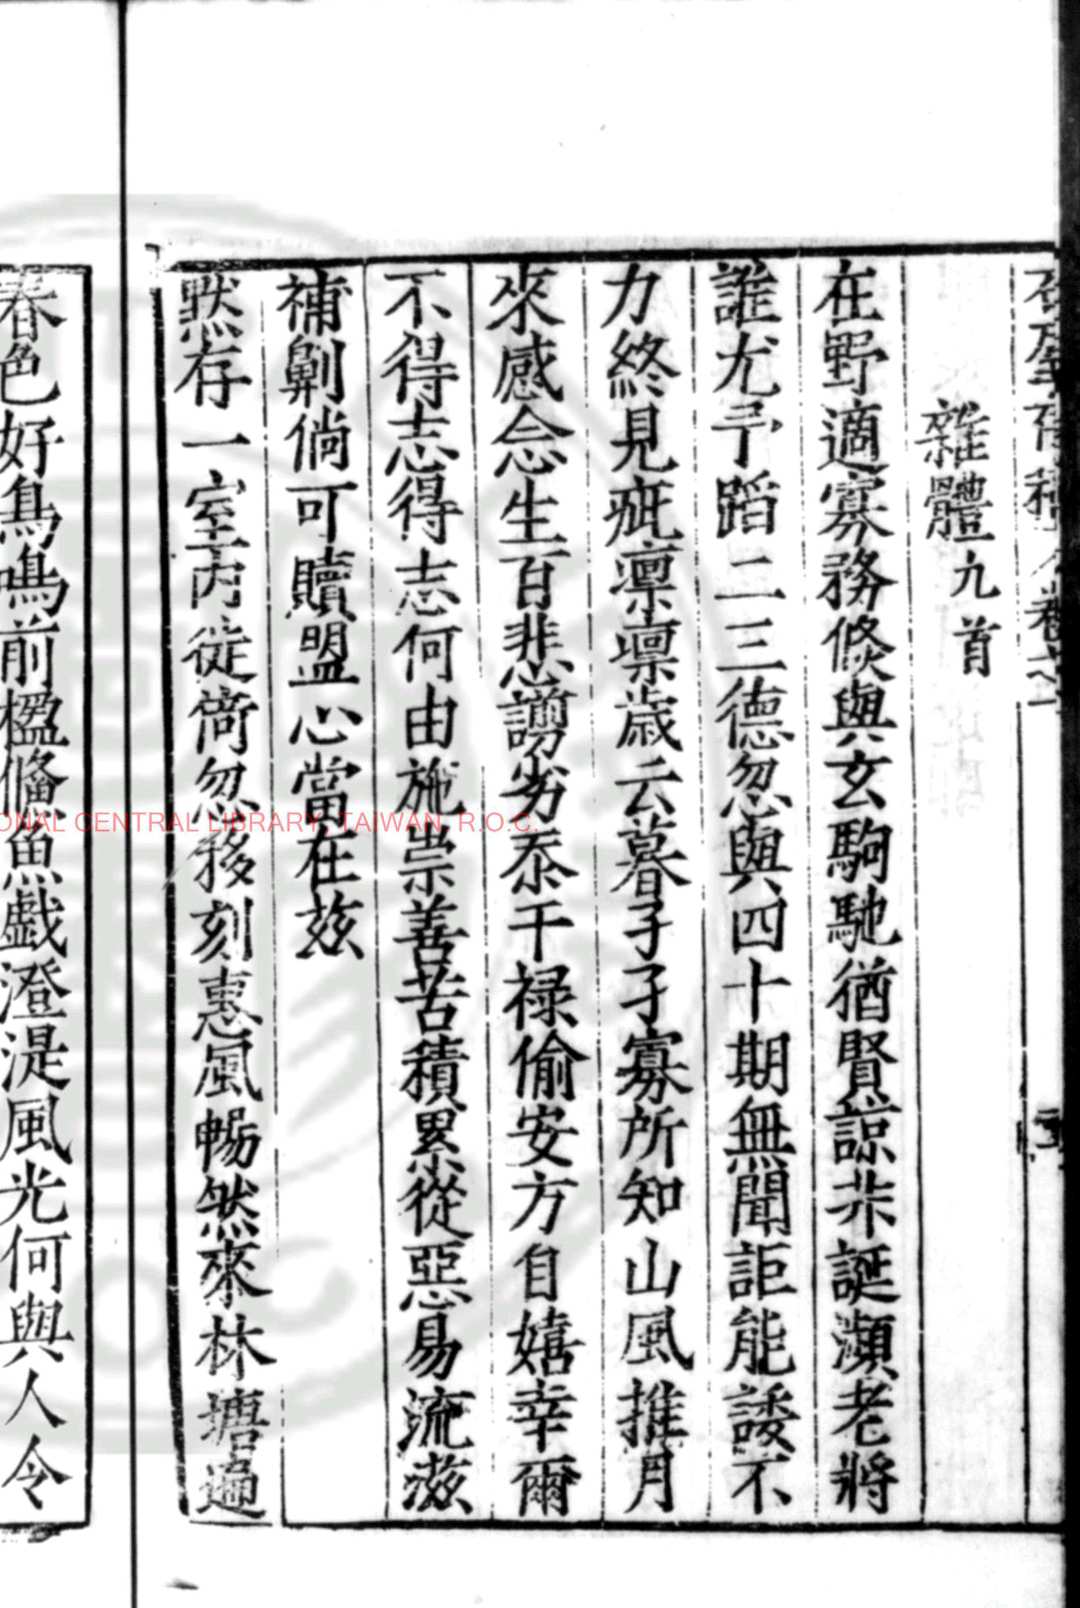 雜體九首
在野適寡務倐與玄駒馳猶賢諒非誕瀕老將
誰尤予蹈二三德忽與四十期無聞詎能諉不
力終見疵凛凛歲云暮孑孑寡所知山風推月
來感念生百悲謭劣忝干禄偷安方自嬉幸爾
不得志得志何由施崇善苦積累從惡易流滋
補劓倘可贖盟心當在兹
黙存一室內徙倚忽移刻惠風暢然來林塘逼
春色好鳥鳴前楹鯈魚戲澄湜風光何與人令
NATIONAL CENTRAL LIBRARY, TAIWAN, R.O.C.